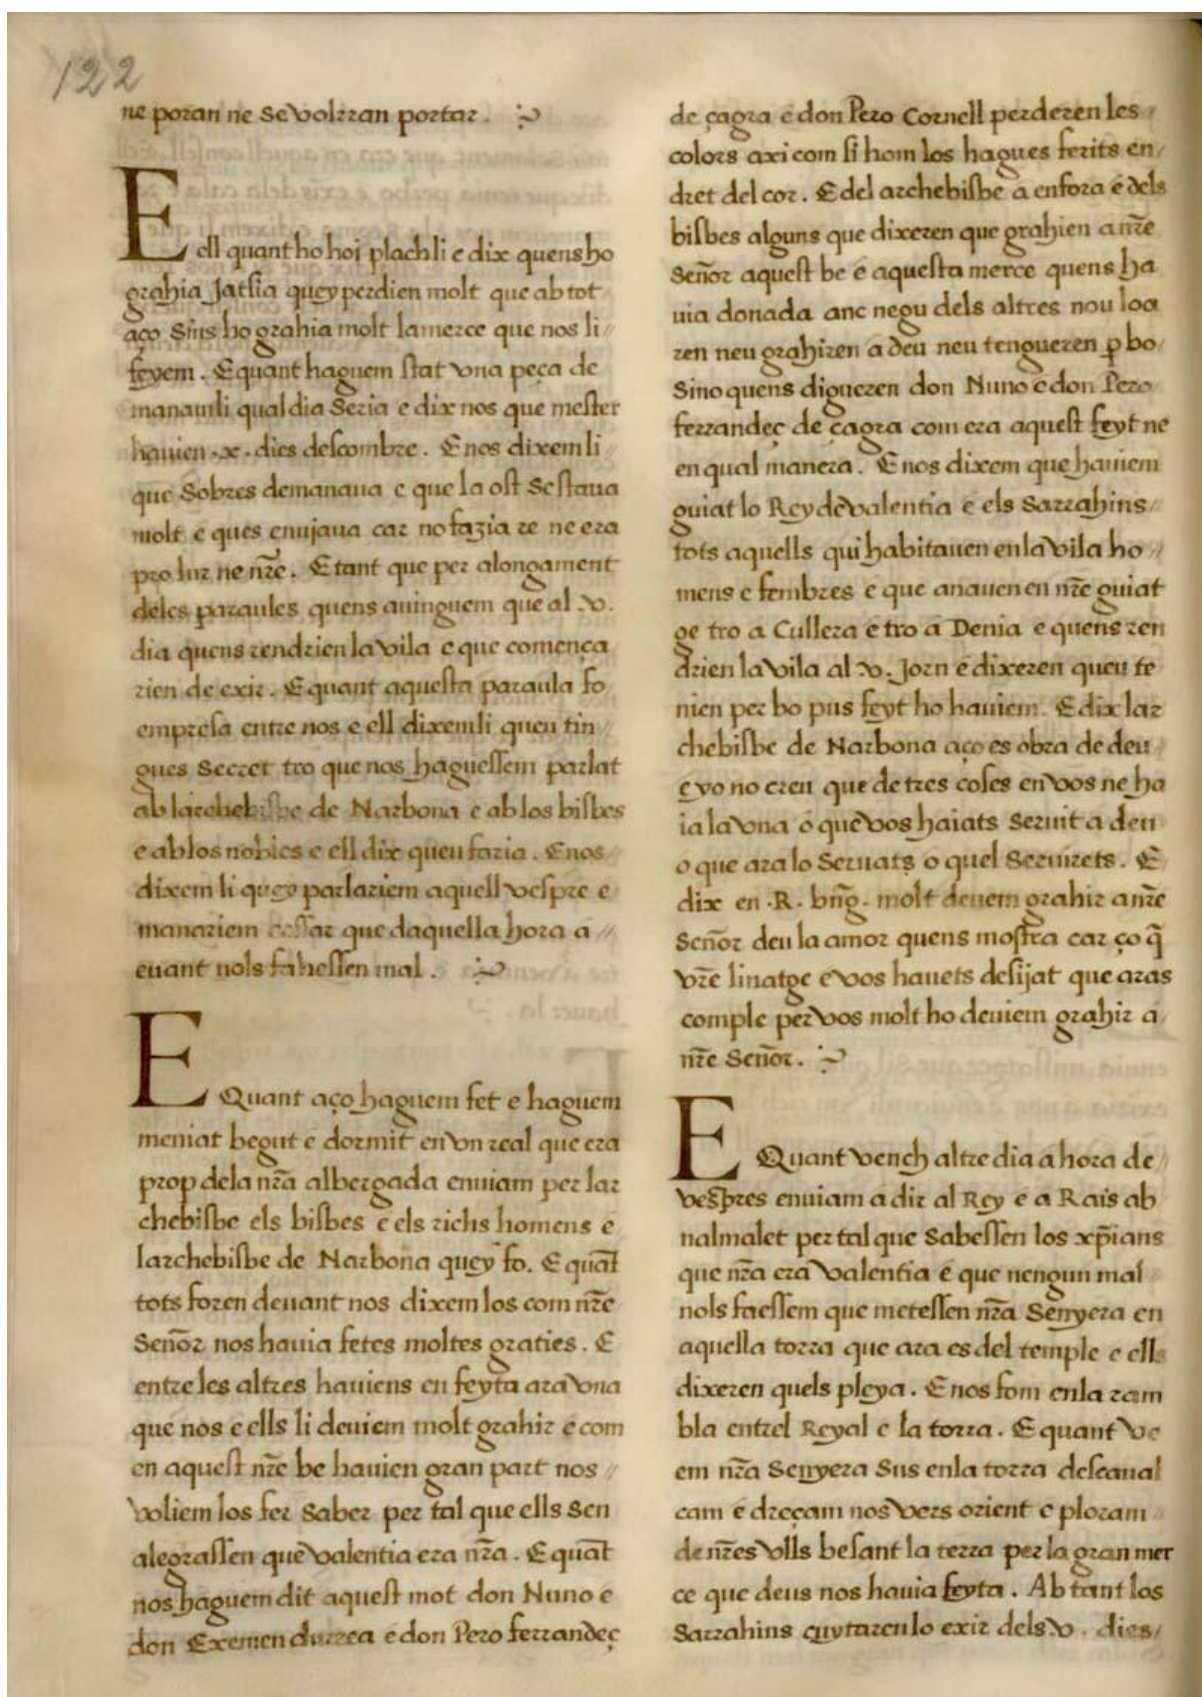 122
ne poran ne se volrran portar.
E ell quant ho hoi plach li e dix quens ho
grahia Jatsia quey perdien molt que ab tot
aço sins ho grahia molt la merce que nos li
feyem. E quant haguem stat vna peça de
manamli qual dia seria e dix nos que mester
hauien .x. dies descombre. E nos dixem li
que sobres demanaua e que la ost se staua
molt e ques enujaua car no fazia re ne era
pro lur ne nr̃e. E tant que per alongament
deles paraules quens auinguem que al .v.
dia quens rendrien la vila e que comença
rien de exir. E quant aquesta paraula fo
empresa entre nos e ell dixemli queu tin
gues secret tro que nos haguessem parlat
ab larchebisbe de Narbona e ab los bisbes
e ab los nobles e ell dix queu faria. E nos
dixem li quey parlariem aquell vespre e
manariem cessar que daquella hora a
euant nols fahessen mal.
E Quant aço haguem fet e haguem
meniat begut e dormit en vn real que era
prop dela nr̃a albergada enuiam per lar
chebisbe els bisbes e els richs homens e
larchebisbe de Narbona quey fo. E quãt
tots foren deuant nos dixem los com nr̃e
Señor nos hauia fetes moltes graties. E
entre les altres hauiens en feyta ara vna
que nos e ells li deuiem molt grahir e com
en aquest nr̃e be hauien gran part nos
voliem los fer saber per tal que ells sen
alegrassen que valentia era nr̃a. E quãt
nos haguem dit aquest mot don Nuno e
don Exemen durrea e don Pero ferrandeç
de çagra e don Pero Cornell perderen les
colors axi com si hom los hagues ferits en
dret del cor. E del archebisbe a enfora e dels
bisbes alguns que dixeren que grahien a nr̃e
Señor aquest be e aquesta merce quens ha
uia donada anc negu dels altres nou loa
ren neu grahiren a deu neu tengueren ꝑ bo
Sino quens digueren don Nuno e don Pero
ferrandeç de çagra com era aquest feyt ne
en qual manera. E nos dixem que hauiem
guiat lo Rey de valentia e els Sarrahins
tots aquells qui habitauen en la vila ho
mens e fembres e que anauen en nr̃e guiat
ge tro a Cullera e tro a Denia e quens ren
drien la vila al .v. Jorn e dixeren queu te
nien per bo pus feyt ho hauiem. E dix lar
chebisbe de Narbona aço es obra de deu
e yo no creu que de tres coses en vos ne ha
ia la vna o que vos haiats seruit a deu
o que ara lo seruats o quel seruirets. E
dix en .R. bñg. molt deuem grahir a nr̃e
Señor deu la amor quens mostra car ço q̃
vr̃e linatge e vos hauets desijat que aras
comple per vos molt ho deuiem grahir a
nr̃e Señor.
E Quant vench altre dia a hora de
vespres enuiam a dir al Rey e a Rais ab
nalmalet per tal que sabessen los xp̃ians
que nr̃a era valentia e que nengun mal
nols faessem que metessen nr̃a Senyera en
aquella torra que ara es del temple e ells
dixeren quels pleya. E nos fom en la ram
bla entrel Reyal e la torra. E quant ve
em nr̃a Senyera sus en la torra descaual
cam e dreçam nos vers orient e ploram
de nr̃es vlls besant la terra per la gran mer
ce que deus nos hauia feyta. Ab tant los
Sarrahins cuytaren lo exir dels .v. dies